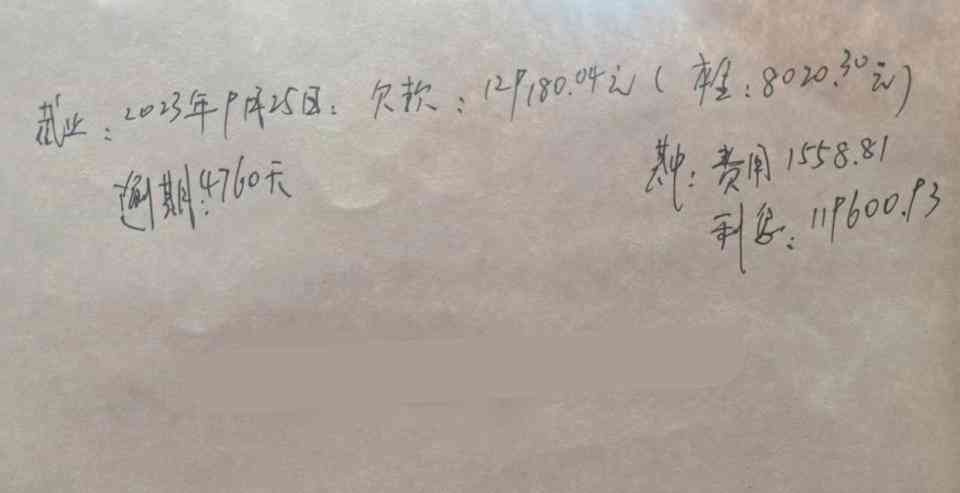 截止：2023年9月25日：欠款：129180.04元（本金：8020.30元）
逾期：4760天
其中：费用1558.81
利息：119600.93